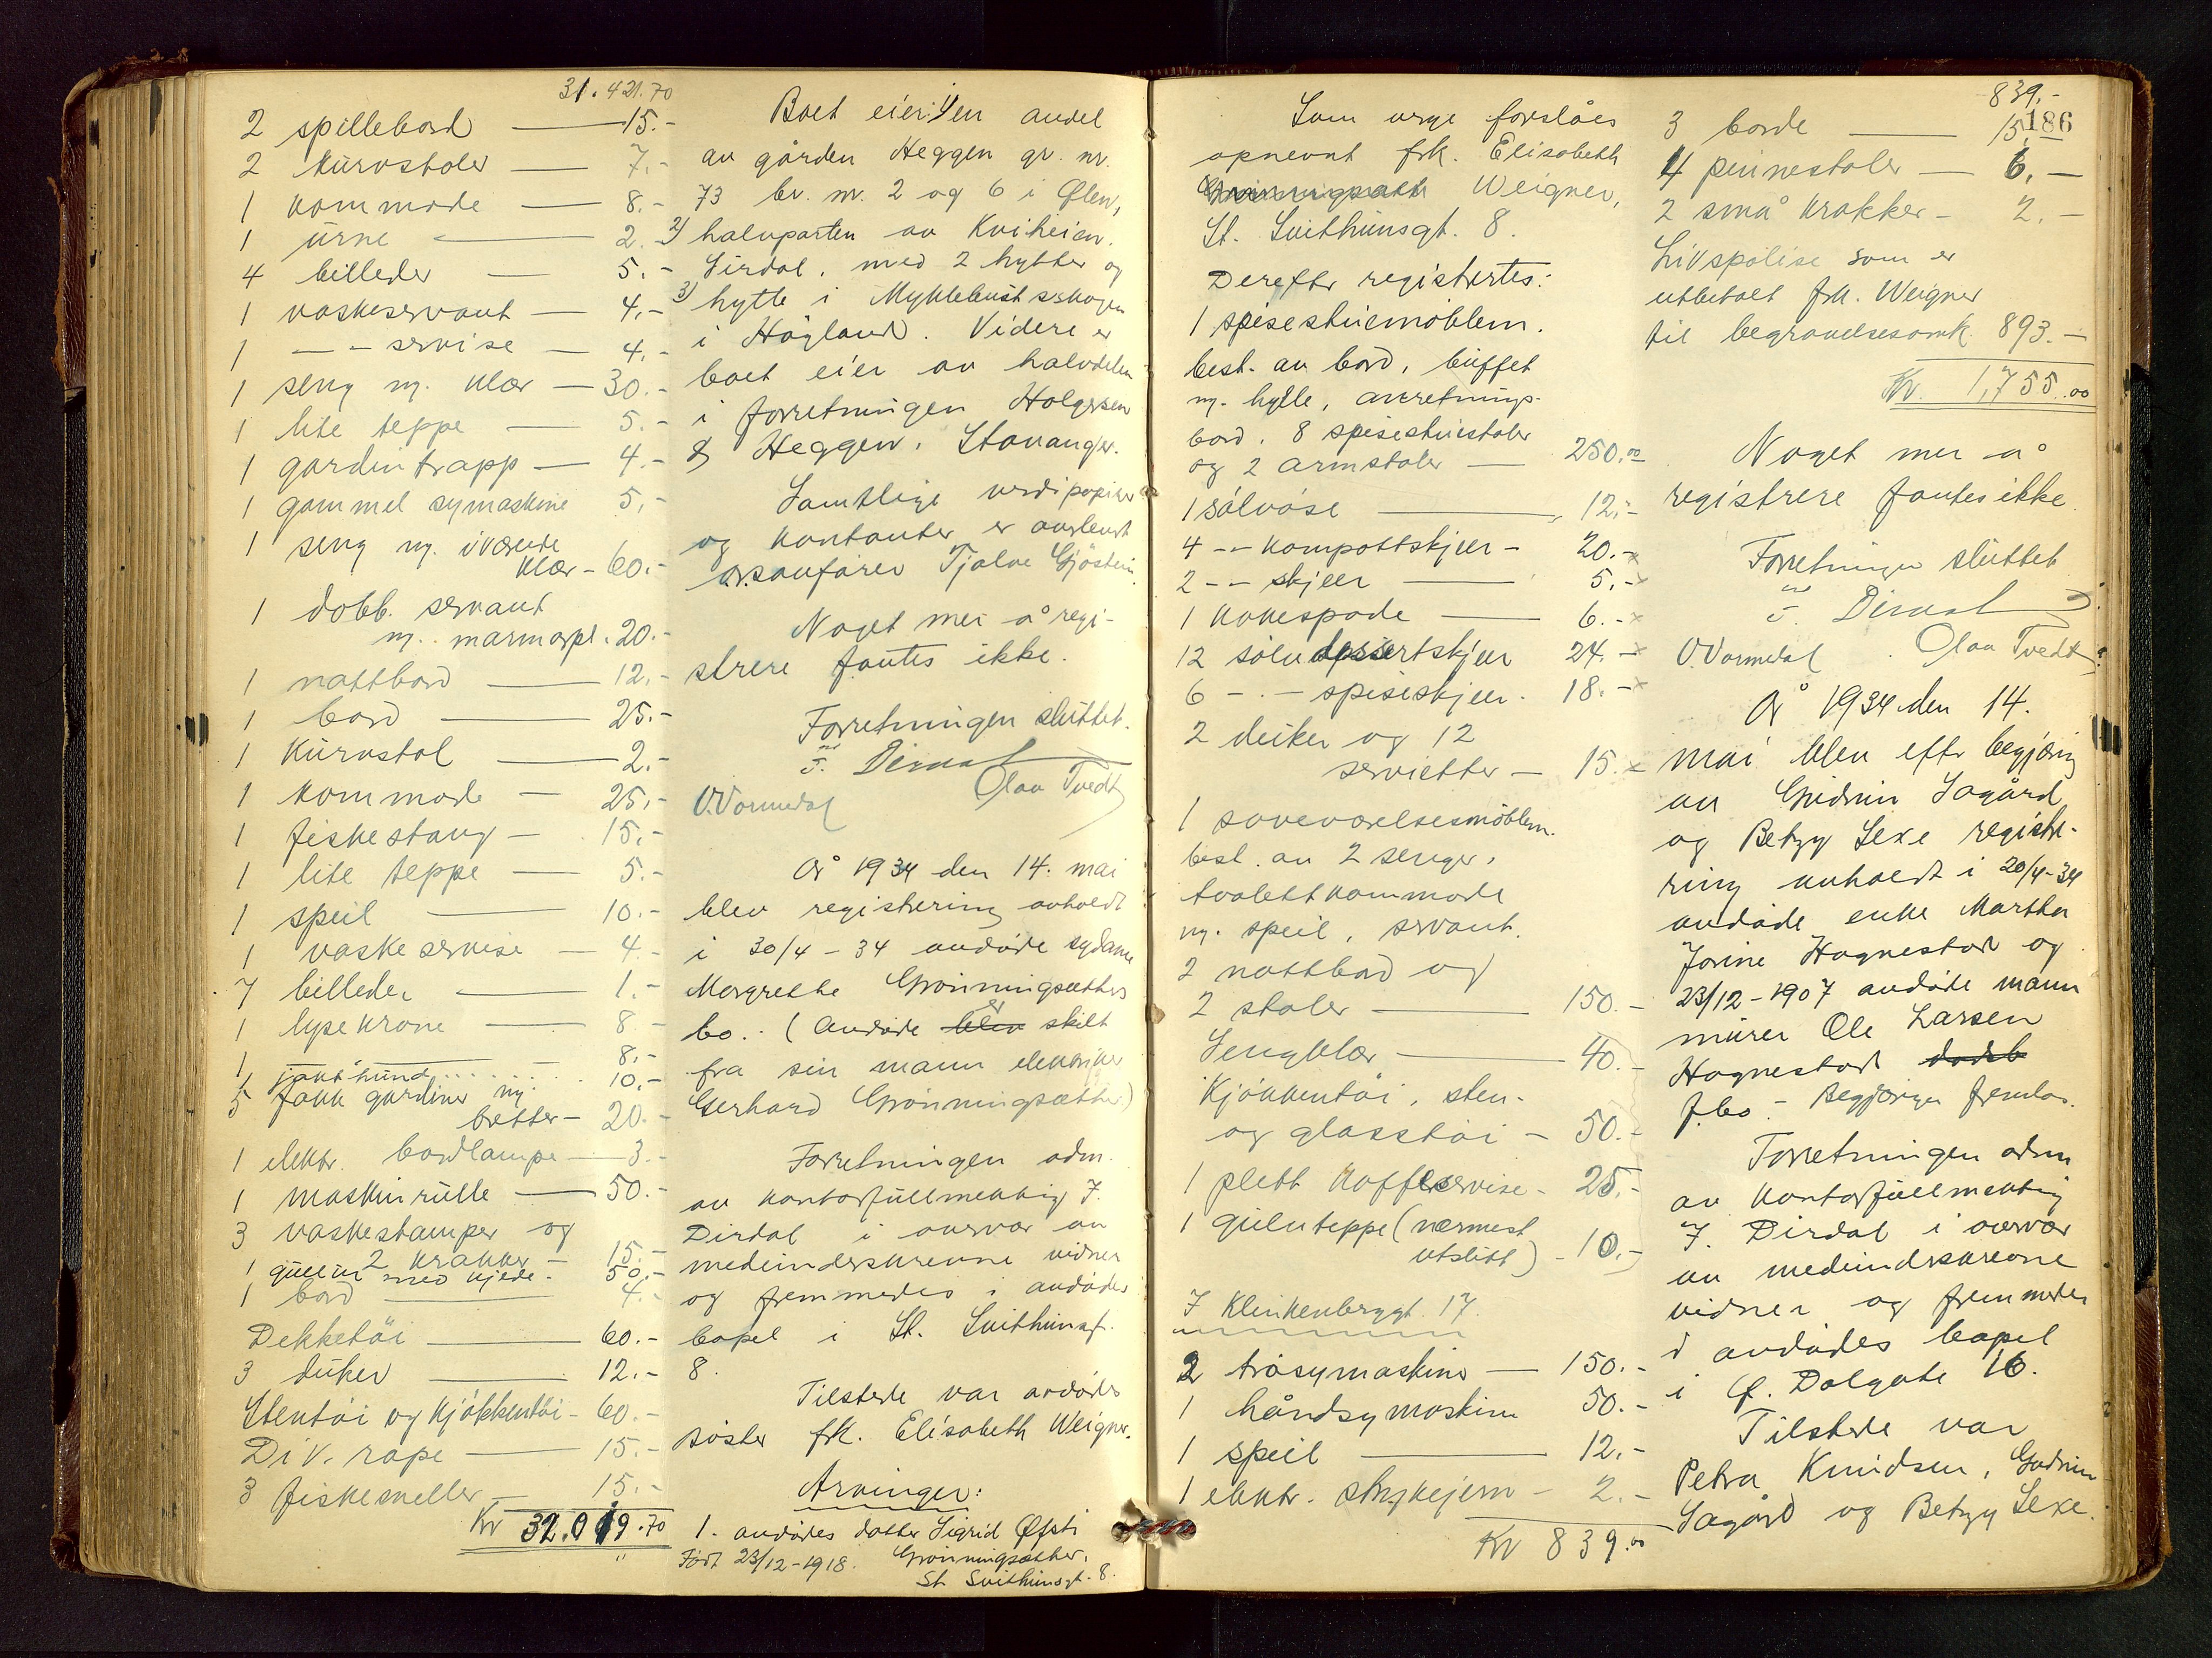 31.421.70
2 spillebord — 15.-
2 kurvstoler — 7.-
1 kommode — 8.-
1 urne — 2.-
4 billeder — 5.-
1 vaskeservant — 4.-
1 — — servise — 4.-
1 seng m. klær — 30.-
1 lite teppe — 5.-
1 gardintrapp — 4.-
1 gammel symaskine 5.-
1 seng m. iværende
klær - 60.-
1 dobb. servant
m. marmorpl. 20.-
1 nattbord — 12.-
1 bord — 25.-
1 kurvstol — 2.-
1 kommode — 25.-
1 fiskestang — 15.-
1 lite teppe — 5.-
1 speil — 10.-
1 vaskeservise — 4.-
7 billeder — 1.-
1 lysekrone — 8.-
1 — 8.-
1 jakthund ........ 10.-
5 fakk gardiner m.
bretter - 20.-
1 elektr. bordlampe — 3.-
1 maskinrulle — 50.-
3 vaskestamper og
2 krakker - 15.-
1 gullur med kjede. 50.-
1 bord — 4.-
Dekketöi — 60.-
3 duker — 12.-
Stentöi og kjökkentöi - 60.-
Div. rape — 15.-
3 fiskesneller — 15.-
Kr 32.019.70
Boet eier: 1/ en andel
av gården Heggen gr. nr.
73 br. nr. 2 og 6 i Ølen,
2) halvparten av Kviheien.
Sirdal. med 2 hytter og
3) hytte i Myklebustsskogen
i Högland. Videre er
boet eier av halvdelen
i forretningen Holgersen
& Heggen. Stavanger.
Samtlige verdipapirer
og kontanter er avlevert
o.r.sakfører Tjalve Gjöstein.
Noget mer å regi-
strere fantes ikke.
Forretningen sluttet.
J. Dirdal
V. Vormedal Olav Tvedt
År 1934 den 14. mai
blev registrering avholdt
i 30/4 - 34 avdöde sydame
Margrethe Grönningsæthers
bo. - (Avdöde blev er skilt
fra sin mann elektriker
Gerhard Grönningsæther)
Forretningen adm.
av kontorfullmektig J.
Dirdal i overvær av
medunderskrevne vidner
og fremmedes i avdödes
bopel i St. Svithunsgt.
8.
Tilstede var avdödes
söster frk. Elisabeth Weigner.
Arvinger:
1. avdödes datter Sigrid Øfsti
Født 23/12-1918. Grönningsæther.
St. Svithunsgt. 8.
Som verge foreslåes
opnevnt frk. Elisabeth
Weigner,
St. Svithunsgt. 8.
Derefter registrertes:
1 spisestuemöblem.
best. av bord, buffet
m. hylle, anretnings-
bord. 8 spisestuestoler
og 2 armstoler — 250.00
1 sölvvåse — 12.-
4 - - kompottskjeer - 20.- x
2 - - skjeer — 5.- x
1 kakespade — 6.- x
12 sölvdessertskjeer 24.- x
6 - . - spiseskjeer. 18.- x
2 duker og 12
servietter — 15.- x
1 soveværelsesmöblem.
best. av 2 senger,
toalettkommode
m. speil, servant.
2 nattbord og
2 stoler — 150.-
Sengklær — 40.-
Kjökkentöi, sten-
og glasstöi - 50.-
1 plett kaffeservise - 25.-
1 gulvteppe (nærmest
utslitt) - 10.-
I Klinkenberggt. 17.
2 tråsymaskine — 150.-
1 håndsymaskine 50.-
1 speil — 12.-
1 elektr. strykejern - 2.-
Kr 839.00
839.-
186
3 borde — 15.-
4 pinnestoler — 6.-
2 små krakker - 2.-
Livspolise som er
utbetalt frk. Weigner
til begravelsesomk. 893.-
Kr. 1,755.00
Noget mer å
registrere fantes ikke.
Forretningen sluttet
J. Dirdal
V. Vormedal Olav Tvedt
År 1934 den 14.
mai blev efter begjæring
av Gudrun Sagård
og Betzy Sexe registre-
ring avholdt i 20/4-34
avdöde enke Martha
Jorine Hognestad og
23/12-1907 avdöde mann
murer Ole Larsen
Hognestad
f.bo. - Begjæringen fremlas.
Forretningen adm
av kontorfullmektig
J. Dirdal i overvær
av medunderskrevne
vidner og fremmedes
i avdödes bopel
i Ø. Dalgate 16.
Tilstede var
Petra Knudsen, Gudrun
Sagård og Betzy Sexe.